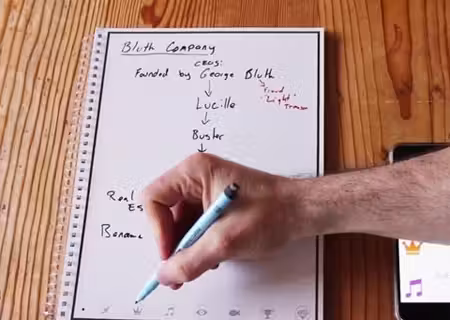 Bluth Company
CEOS:
Founded by George Bluth
Fraud
"Light"
Treason
Lucille
Buster
Real
Es
Banana